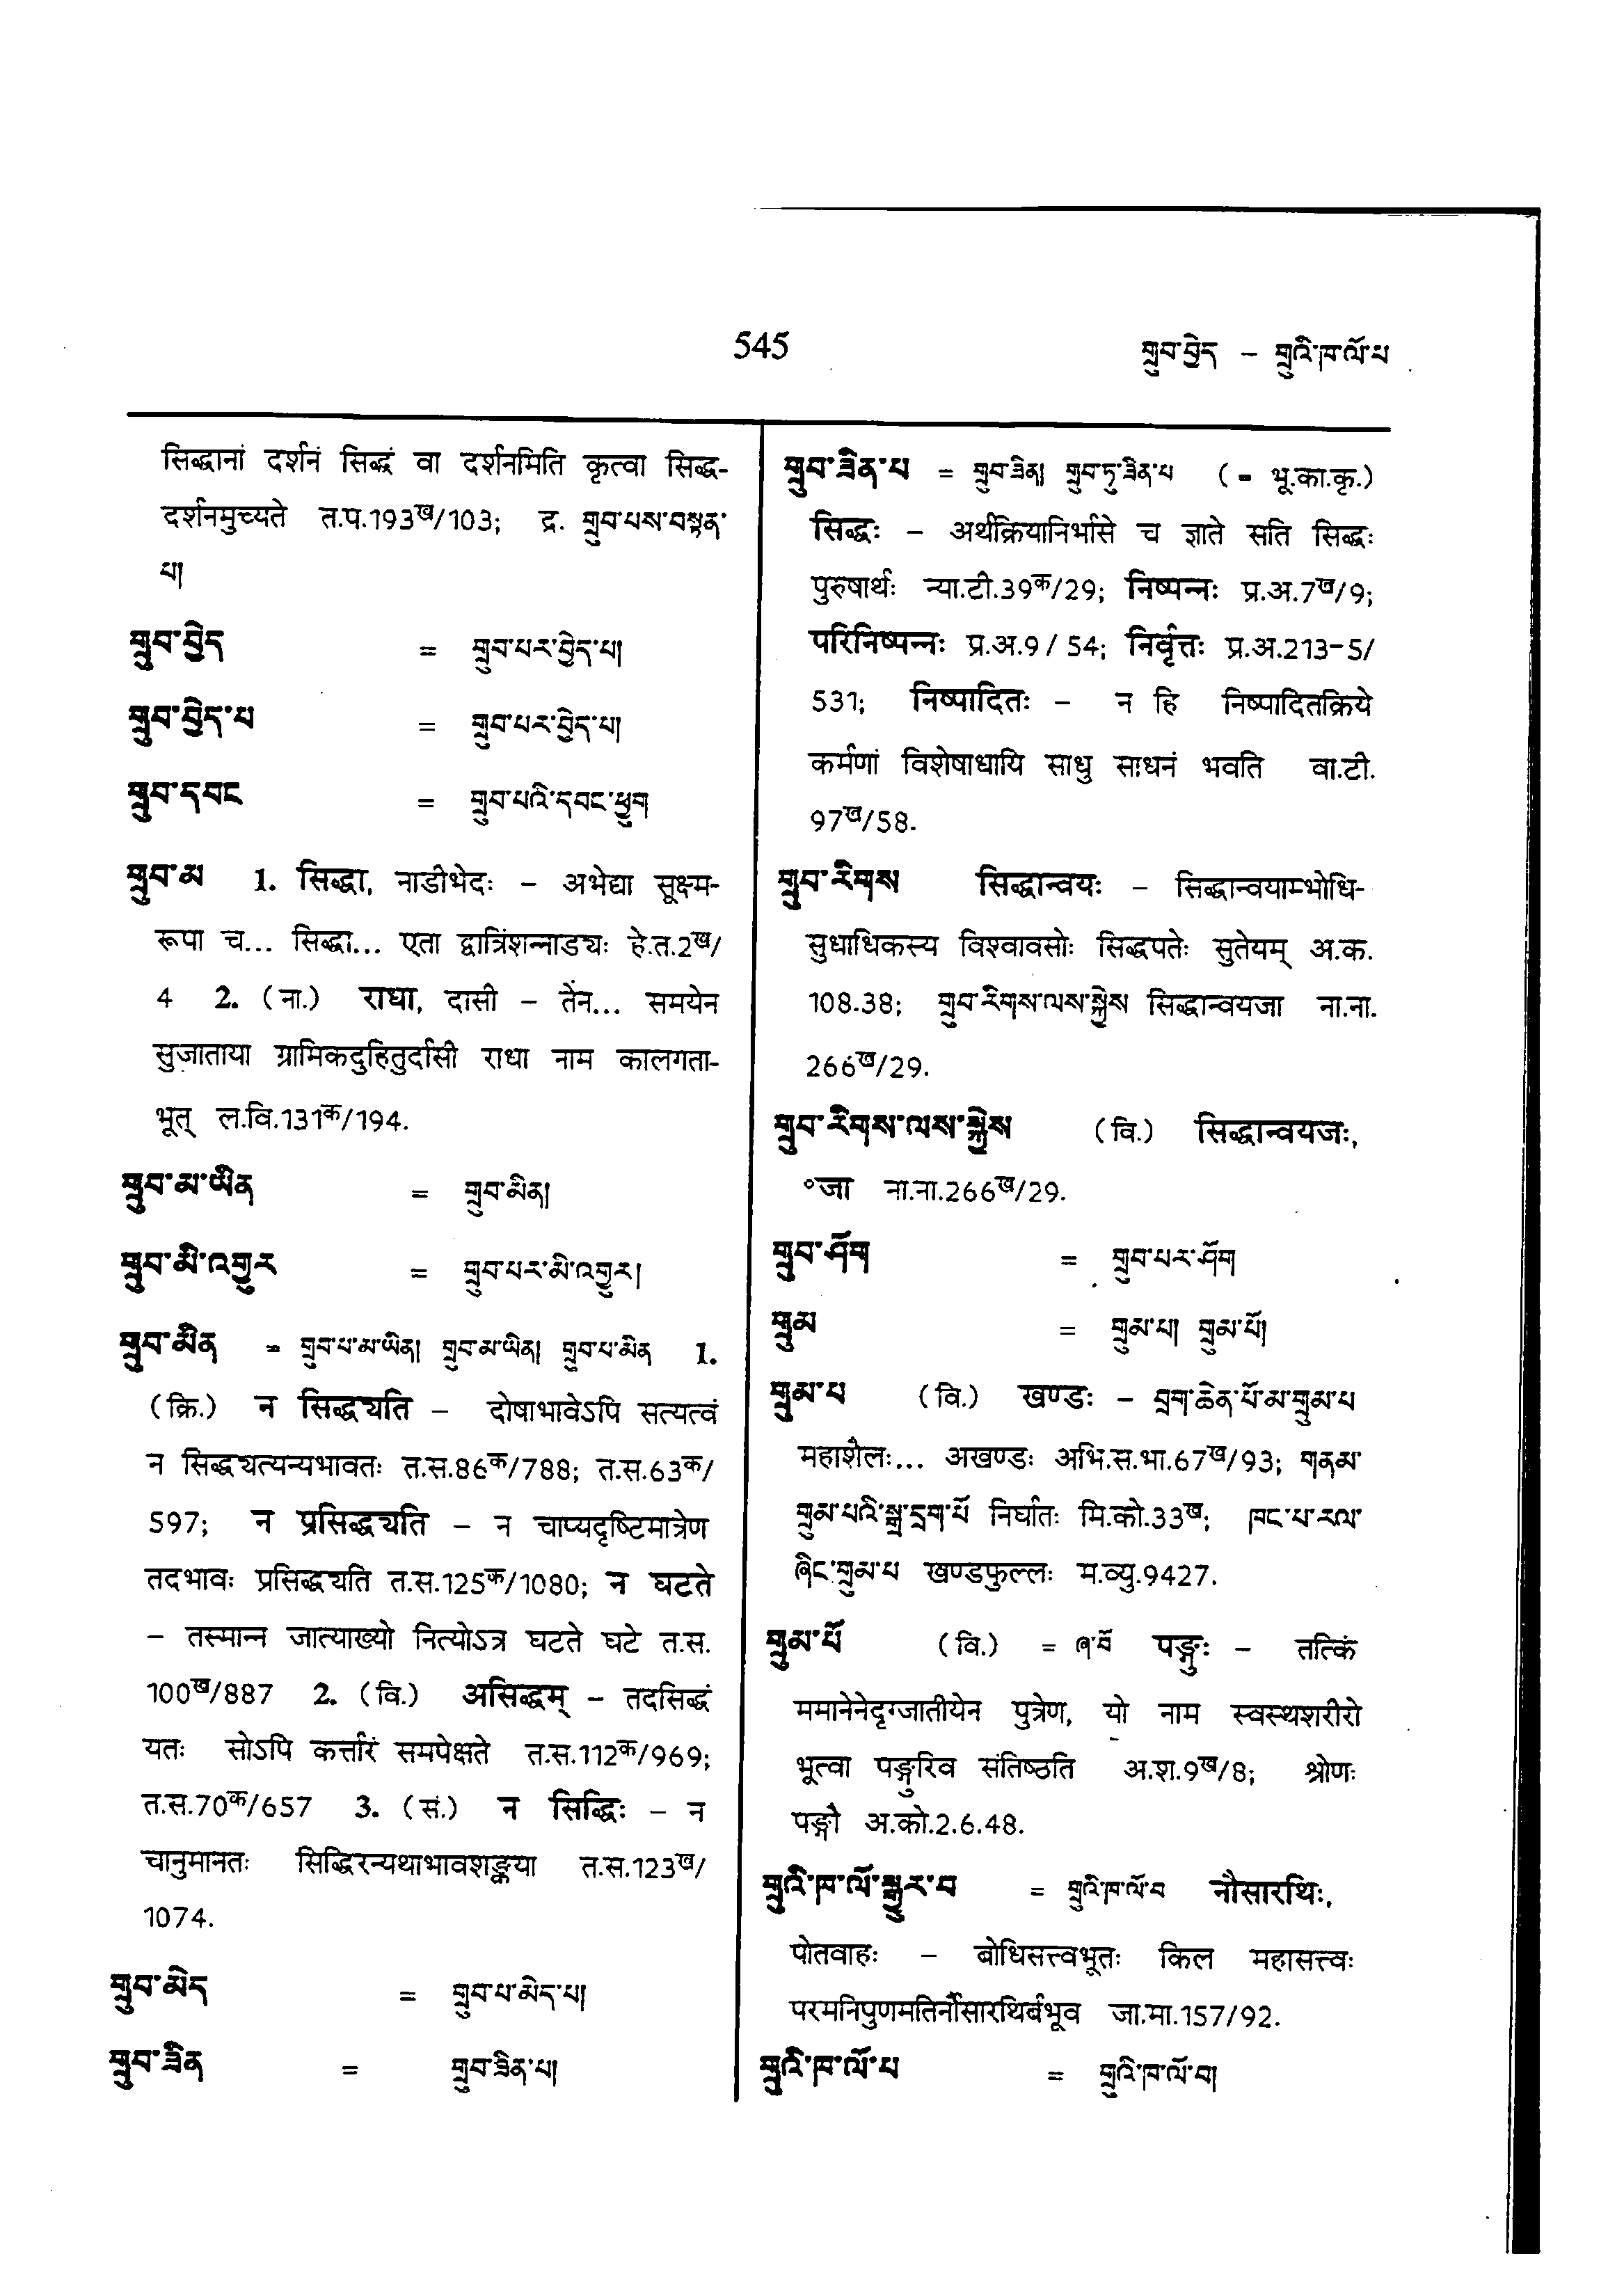 545
གྲུབ་བྱེད – གྲུའི་ཁ་ལོ་པ
सिद्धानां दर्शनं सिद्धं वा दर्शनमिति कृत्वा सिद्ध-
दर्शनमुच्यते त.प.193ख/103; द्र. གྲུབ་པས་བསྟན་
པ།
གྲུབ་བྱེད = གྲུབ་པར་བྱེད་པ།
གྲུབ་བྱེད་པ = གྲུབ་པར་བྱེད་པ།
གྲུབ་དབང = གྲུབ་པའི་དབང་ཕྱུག
གྲུབ་མ 1. सिद्धा, नाडीभेदः – अभेद्या सूक्ष्म-
रूपा च... सिद्धा... एता द्वात्रिंशन्नाड्यः हे.त.2ख/
4 2. (ना.) राधा, दासी – तेन... समयेन
सुजाताया ग्रामिकदुहितुर्दासी राधा नाम कालगता-
भूत् ल.वि.131क/194.
གྲུབ་མ་ཡིན = གྲུབ་མིན།
གྲུབ་མི་འགྱུར = གྲུབ་པར་མི་འགྱུར།
གྲུབ་མིན = གྲུབ་པ་མ་ཡིན། གྲུབ་མ་ཡིན། གྲུབ་པ་མིན 1.
(क्रि.) न सिद्ध्यति – दोषाभावेऽपि सत्यत्वं
न सिद्ध्यत्यन्यभावतः त.स.86क/788; त.स.63क/
597; न प्रसिद्ध्यति – न चाप्यदृष्टिमात्रेण
तदभावः प्रसिद्ध्यति त.स.125क/1080; न घटते
– तस्मान्न जात्याख्यो नित्योऽत्र घटते घटे त.स.
100ख/887 2. (वि.) असिद्धम् – तदसिद्धं
यतः सोऽपि कर्त्तारं समपेक्षते त.स.112क/969;
त.स.70क/657 3. (सं.) न सिद्धिः – न
चानुमानतः सिद्धिरन्यथाभावशङ्कया त.स.123ख/
1074.
གྲུབ་མེད = གྲུབ་པ་མེད་པ།
གྲུབ་ཟིན = གྲུབ་ཟིན་པ།
གྲུབ་ཟིན་པ = གྲུབ་ཟིན། གྲུབ་ཏུ་ཟིན་པ (= भू.का.कृ.)
सिद्धः – अर्थक्रियानिर्भासे च ज्ञाते सति सिद्धः
पुरुषार्थः न्या.टी.39क/29; निष्पन्नः प्र.अ.7ख/9;
परिनिष्पन्नः प्र.अ.9/54; निर्वृत्तः प्र.अ.213-5/
531; निष्पादितः – न हि निष्पादितक्रिये
कर्मणां विशेषाधायि साधु साधनं भवति वा.टी.
97ख/58.
གྲུབ་རིགས सिद्धान्वयः – सिद्धान्वयाम्भोधि-
सुधाधिकस्य विश्वावसोः सिद्धपतेः सुतेयम् अ.क.
108.38; གྲུབ་རིགས་ལས་སྐྱེས सिद्धान्वयजा ना.ना.
266ख/29.
གྲུབ་རིགས་ལས་སྐྱེས (वि.) सिद्धान्वयजः,
॰जा ना.ना.266ख/29.
གྲུབ་ཤོག = གྲུབ་པར་ཤོག
གྲུམ = གྲུམ་པ། གྲུམ་པོ།
གྲུམ་པ (वि.) खण्डः – བྲག་ཆེན་པོ་མ་གྲུམ་པ
महाशैलः... अखण्डः अभि.स.भा.67ख/93; གནམ་
གྲུམ་པའི་སྒྲ་དྲག་པོ निर्घातः मि.को.33ख; ཁང་པ་རལ་
ཞིང་གྲུམ་པ खण्डफुल्लः म.व्यु.9427.
གྲུམ་པོ (वि.) = ཞ་བོ पङ्गुः – तत्किं
ममानेनेदृग्जातीयेन पुत्रेण, यो नाम स्वस्थशरीरो
भूत्वा पङ्गुरिव संतिष्ठति अ.श.9ख/8; श्रोणः
पङ्गौ अ.को.2.6.48.
གྲུའི་ཁ་ལོ་སྒྱུར་བ = གྲུའི་ཁ་ལོ་བ नौसारथिः,
पोतवाहः – बोधिसत्त्वभूतः किल महासत्त्वः
परमनिपुणमतिर्नौसारथिर्बभूव जा.मा.157/92.
གྲུའི་ཁ་ལོ་པ = གྲུའི་ཁ་ལོ་བ།